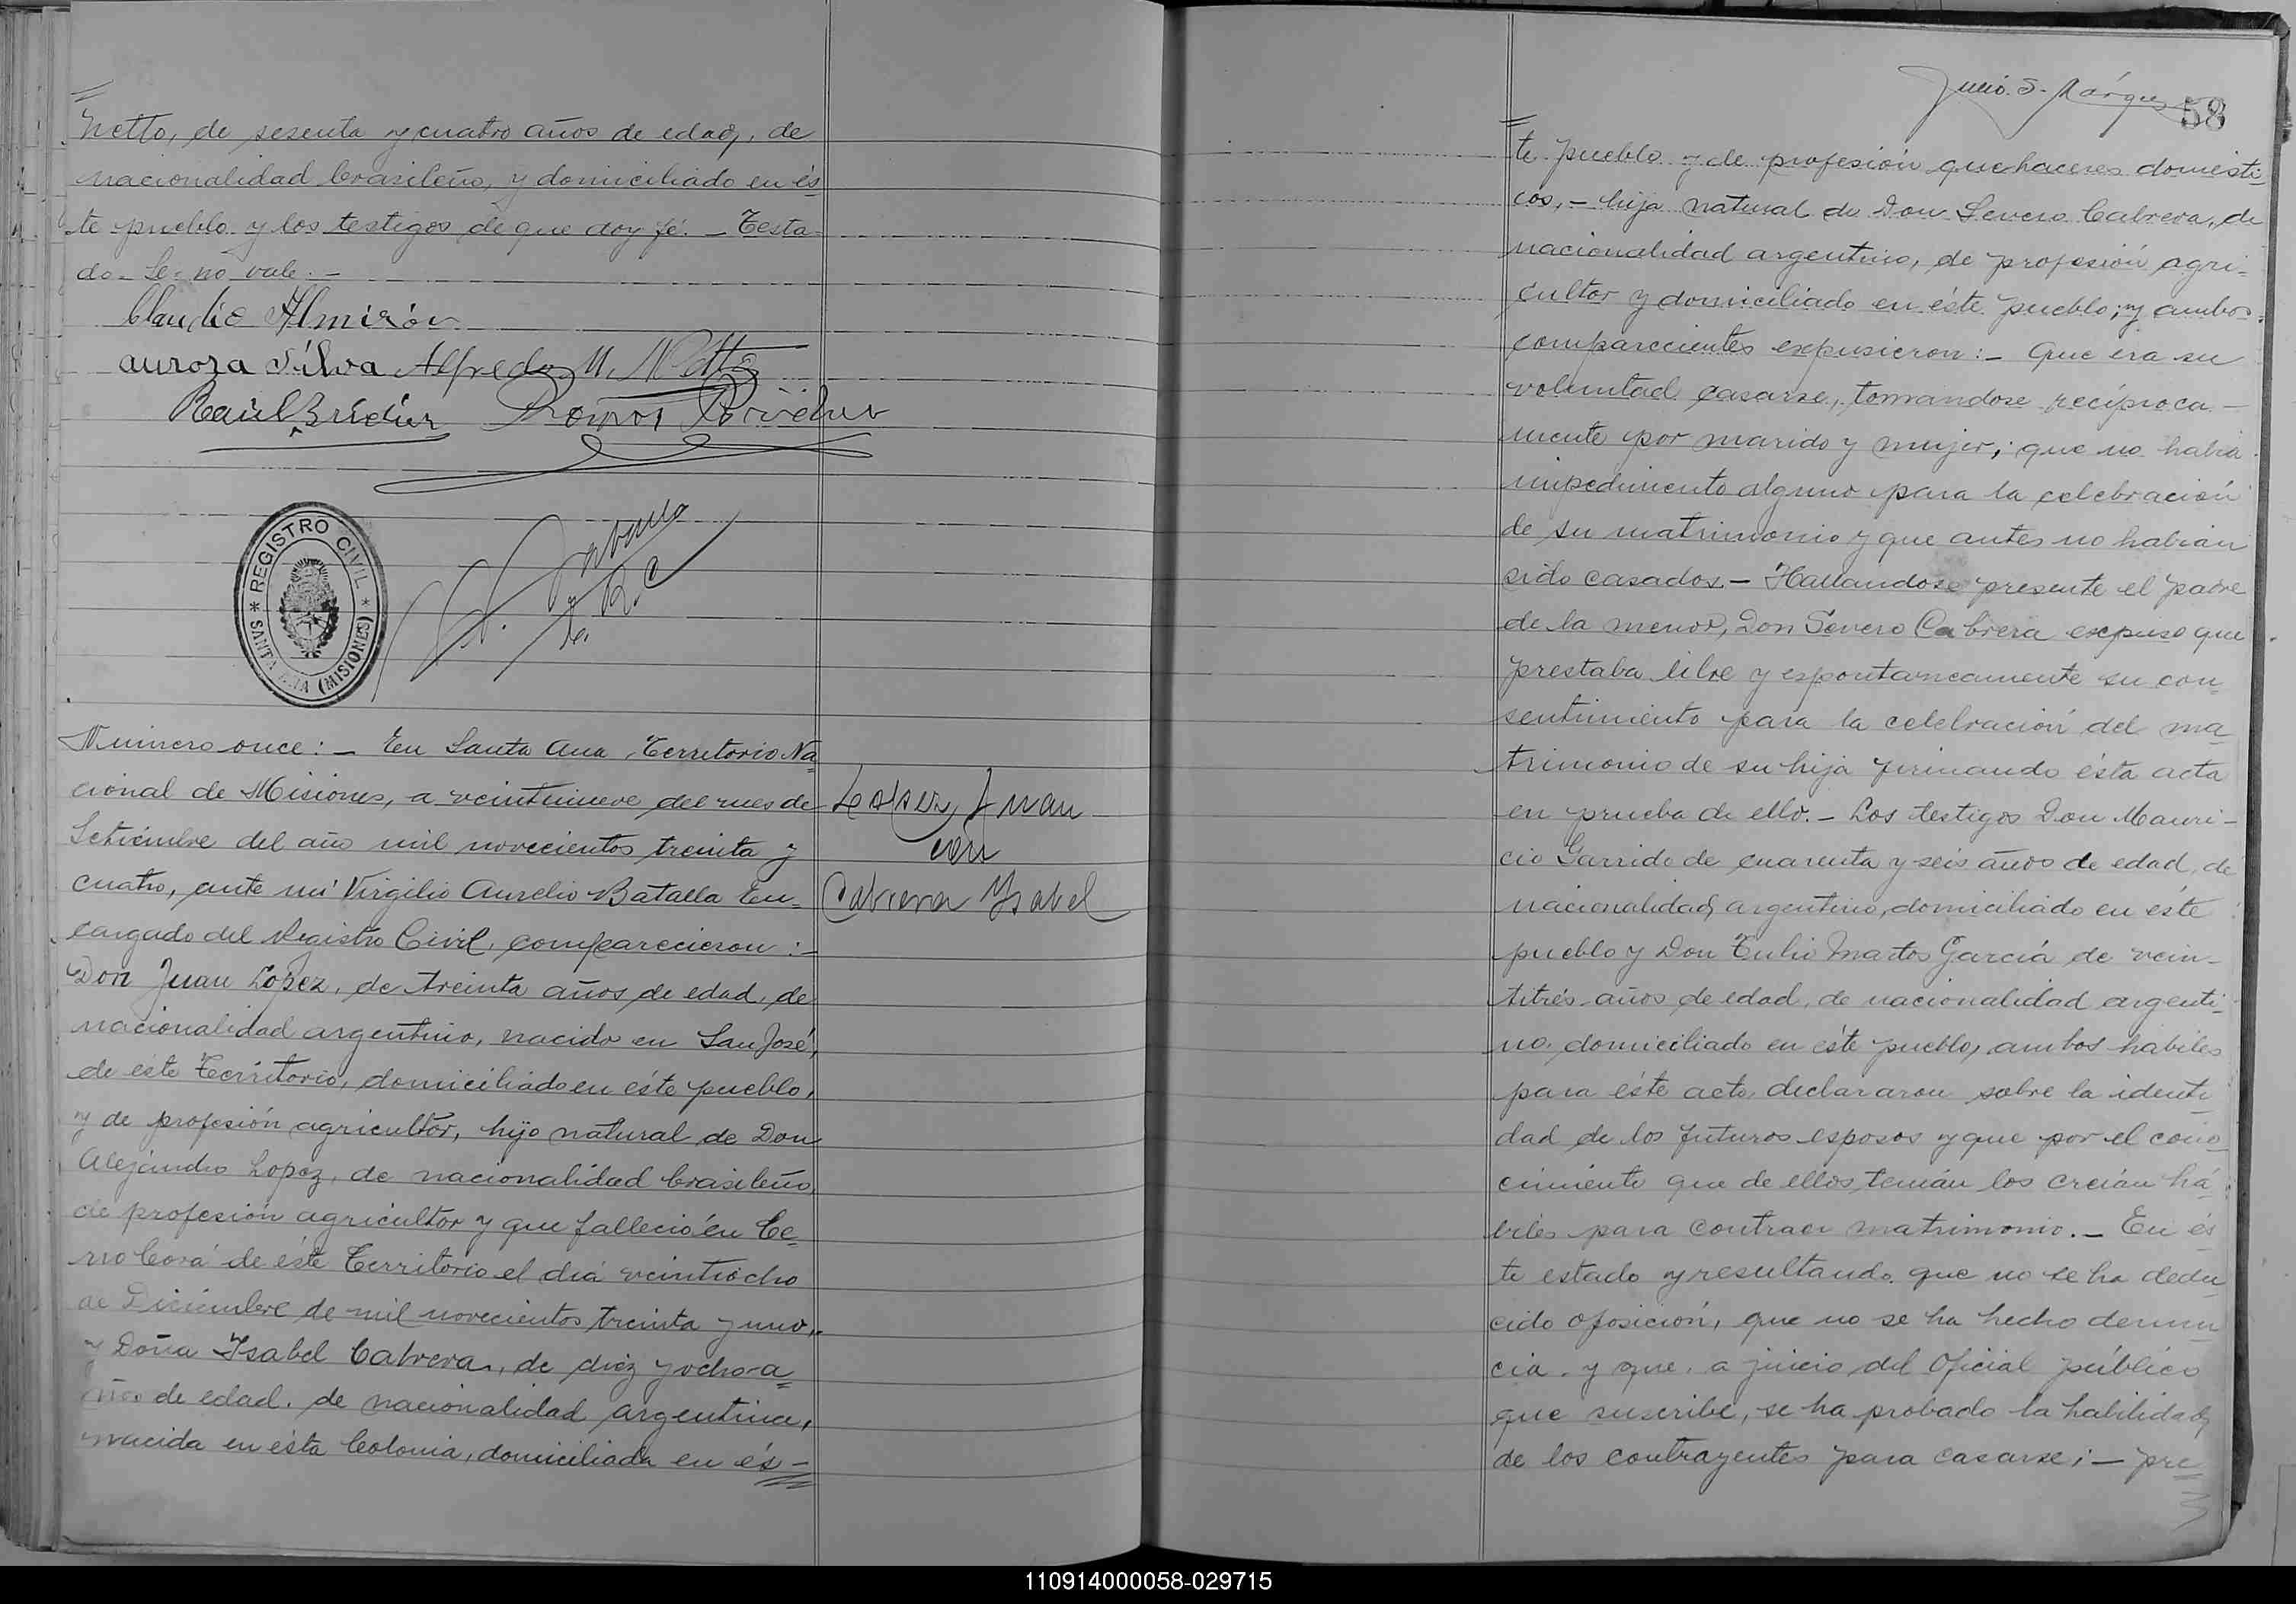 Netto, de sesenta y cuatro años de edad, de
nacionalidad brasileño, y domiciliado en és
te pueblo y los testigos de que doy fé. - Testa-
do - Se - no vale. -
Claudio Almirón
aurora Silva Alfredo M. Netto
Raúl
REGISTRO CIVIL
* SANTA ANA (MISIONES) *
Número once: - En Santa Ana, Territorio Na
cional de Misiones, a veintinueve del mes de
Setiembre del año mil novecientos treinta y
cuatro, ante mí Virgilio Aurelio Batalla En-
cargado del Registro Civil, comparecieron: -
Don Juan Lopez, de treinta años de edad, de
nacionalidad argentino, nacido en San José,
de éste Territorio, domiciliado en éste pueblo,
y de profesión agricultor, hijo natural de Don
Alejandro Lopez, de nacionalidad brasileño,
de profesión agricultor y que falleció en Ce-
rro Corá de éste Territorio el día veintiocho
de Diciembre de mil novecientos treinta y uno,
y Doña Ysabel Cabrera, de diez y ocho a=
ños de edad, de nacionalidad argentina,
nacida en ésta Colonia, domiciliada en és-
Lopez, Juan
con
Cabrera Ysabel
Julio S. Márquez
58
te pueblo y de profesión quehaceres domésti-
cos, - hija natural de Don Severo Cabrera, de
nacionalidad argentino, de profesión agri-
cultor y domiciliado en éste pueblo; y ambos
comparecientes expusieron: - Que era su
voluntad casarse, tomandose recíproca -
mente por marido y mujer; que no había
impedimento alguno para la celebración
de su matrimonio y que antes no habían
sido casados. - Hallandose presente el padre
de la menor, Don Severo Cabrera expuso que
prestaba libre y espontaneamente su con-
sentimiento para la celebración del ma-
trimonio de su hija firmando ésta acta
en prueba de ello. - Los testigos Don Mauri-
cio Garrido de cuarenta y seis años de edad, de
nacionalidad argentino, domiciliado en éste
pueblo y Don Tulio Martos García de vein-
titrés años de edad, de nacionalidad argenti-
no, domiciliado en éste pueblo, ambos habiles
para éste acto, declararon sobre la identi-
dad de los futuros esposos y que por el cono-
cimiento que de ellos tenían los creían há-
biles para contraer matrimonio. - En és
te estado y resultando que no se ha dedu
cido oposición, que no se ha hecho denun
cia y que, a juicio del Oficial público
que suscribe, se ha probado la habilidad
de los contrayentes para casarse; - pre
110914000058-029715